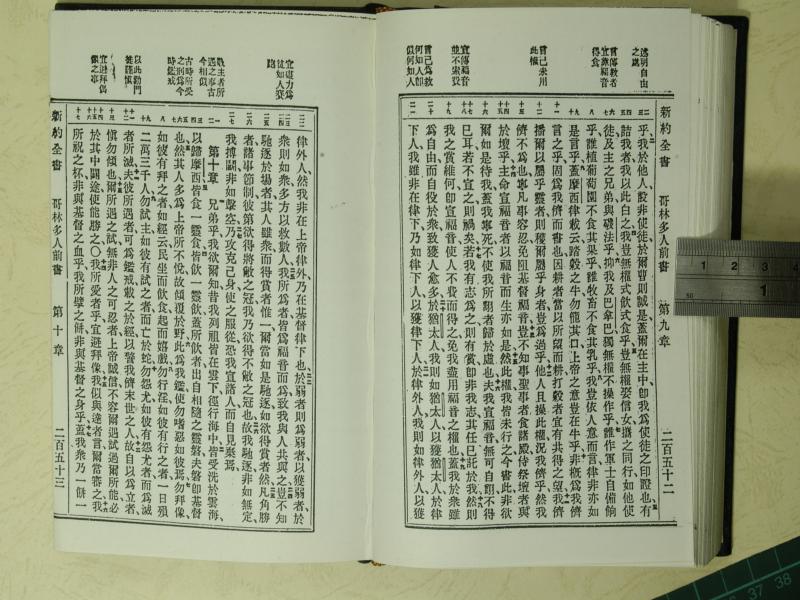 新約全書 哥林多人前書 第九章 二百五十二
述明自由之處
言傳教者宜靠福音得食
言己未用此權
宣傳福音並不索費
言己爲救何如人卽似何如人
乎我於他人設非使徒於爾曹則誠是蓋爾在主中卽我爲使徒之印證也有
詰我者我以此白之我豈無權式飲式食乎豈無權娶信女攜之同行如他使
徒及主之兄弟與磯法乎抑我及巴拿巴獨無權不操作乎誰作軍士自備餉
乎誰植葡萄園不食其果乎誰牧畜不食其乳乎我豈依人意而言律非亦如
是言乎蓋摩西律載云踏穀之牛勿籠其口上帝之意豈在牛乎非概爲我儕
言之乎固爲我儕而書也因耕者當以所望而耕打穀者宜有共得之望我儕
播爾以屬乎靈者則穫爾屬乎身者豈爲過乎他人且操此權況我儕乎然我
儕不爲也寧凡事容忍免阻基督福音豈不知事聖事者食諸殿侍祭壇者與
於壇乎主命宣福音者以福音而生亦如是然此權我皆未行之今書此非欲
爾如是待我蓋我寧死不使我所翹者歸於虛也夫我宣福音無可自翹不得
已耳若不宣之則禍矣若我有志爲之則有賞卽非我志其任已託於我然則
我之賞維何卽宣福音使人不費而得之免我盡用福音之權也蓋我於衆雖
爲自由而自役於衆致獲人愈多於猶太人我則如猶太人以獲猶太人於律
下人我雖非在律下乃如律下人以獲律下人於律外人我則如律外人以獲
宜盡力爲徒如人賽跑
戰主者所遇之事古今相似
古時所受之刑爲今時鑑戒
以此勸門徒謹慎
宜避拜偶像之事
律外人然我非在上帝律外乃在基督律下也於弱者則爲弱者以獲弱者於
衆則如衆多方以救數人我所爲者皆爲福音而爲致我與人共與之豈不知
馳逐於場者其人雖衆而得賞者惟一爾當如是馳逐如欲得賞者然凡角勝
者諸事節制彼第欲得將敝之冠我乃欲得不敝之冠也故我馳逐非如無定
我搏鬬非如擊空乃攻克己身使之服從恐我宣諸人而自見棄焉
第十章 兄弟乎我欲爾知昔我列祖皆在雲下徑行海中皆受洗於雲海
以歸摩西皆食一靈食皆飲一靈飲蓋所飲者出自相隨之靈磐夫磐卽基督
也然其人多爲上帝所不悅故傾覆於野此爲我鑑使勿嗜惡如彼焉勿拜像
如彼有拜之者如經云民坐而飲食起而嬉戲勿行淫如彼有行之者一日殞
二萬三千人勿試主如彼有試之者而亡於蛇勿怨尤如彼有怨尤者而爲滅
者所滅夫彼所遇者可爲鑑戒載之於經以警我儕末世之人故自以爲立者
愼勿傾也爾所遇之試無非人之可忍者上帝誠信不容爾遇試過爾所能必
於其中闢途使能勝之〇我所愛者乎宜避拜像我似與達者言爾當審之我
所祝之杯非與基督之血乎我所擘之餅非與基督之身乎蓋我衆乃一餅一
新約全書 哥林多人前書 第十章 二百五十三
1 2 3 4
50
1
36 37 38